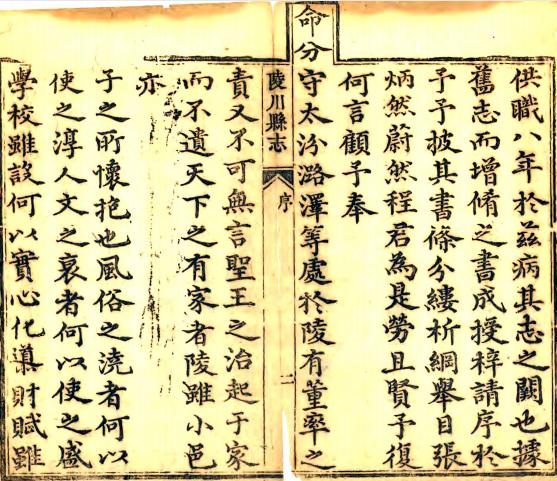 供職八年於茲病其志之闕也據
舊志而增脩之書成授梓請序於
予予披其書條分縷析綱舉目張
炳然蔚然程君為是勞且賢予復
何言顧予奉
命分守太汾潞澤等處於陵有董率之
陵川縣志
序
二
責又不可無言聖王之治起于家
而不遺天下之有家者陵雖小邑
亦
子之所懷抱也風俗之澆者何以
使之淳人文之衰者何以使之盛
學校雖設何以實心化導財賦雖